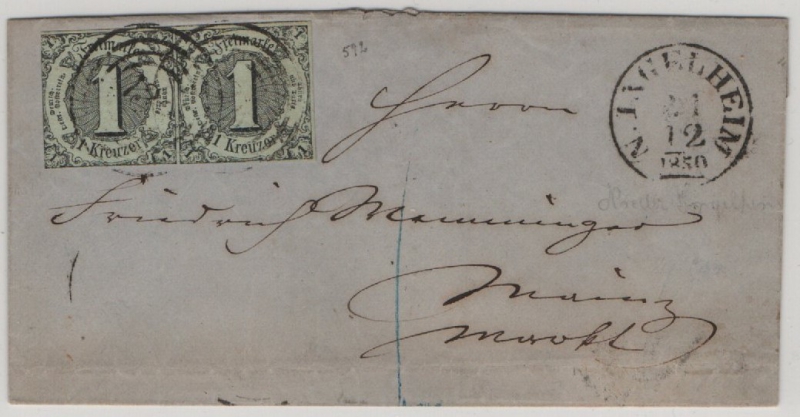 Freimarke Freimarke
1 1
1 Kreuzer 1 Kreuzer
592
N. INGELHEIM
12
1850
Herrn
Friedrich Memminger
Mainz
Markt